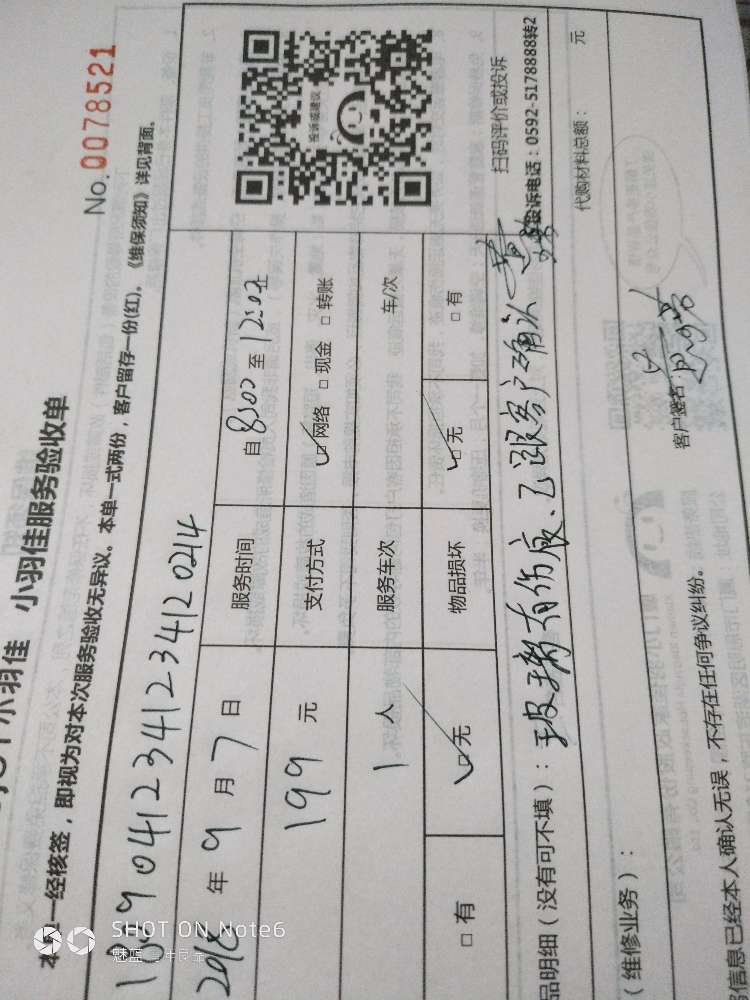 小羽佳 小羽佳服务验收单
No.0078521
一经核签，即视为对本次服务验收无异议。本单一式两份，客户留存一份(红)。《维保须知》详见背面。
2018 年 9 月 7 日 服务时间 自 8:00 至 12:00
199 元 支付方式 网络 现金 转账
1 人 服务车次 车/次
有 无 物品损坏 无 有
品明细（没有可不填）：玻璃有伤痕、已跟客户确认
投诉或建议
扫码评价或投诉
投诉电话：0592-5178888转2
（维修业务）：
代购材料总额： 元
客户签名:
信息已经本人确认无误，不存在任何争议纠纷。
SHOT ON Note6